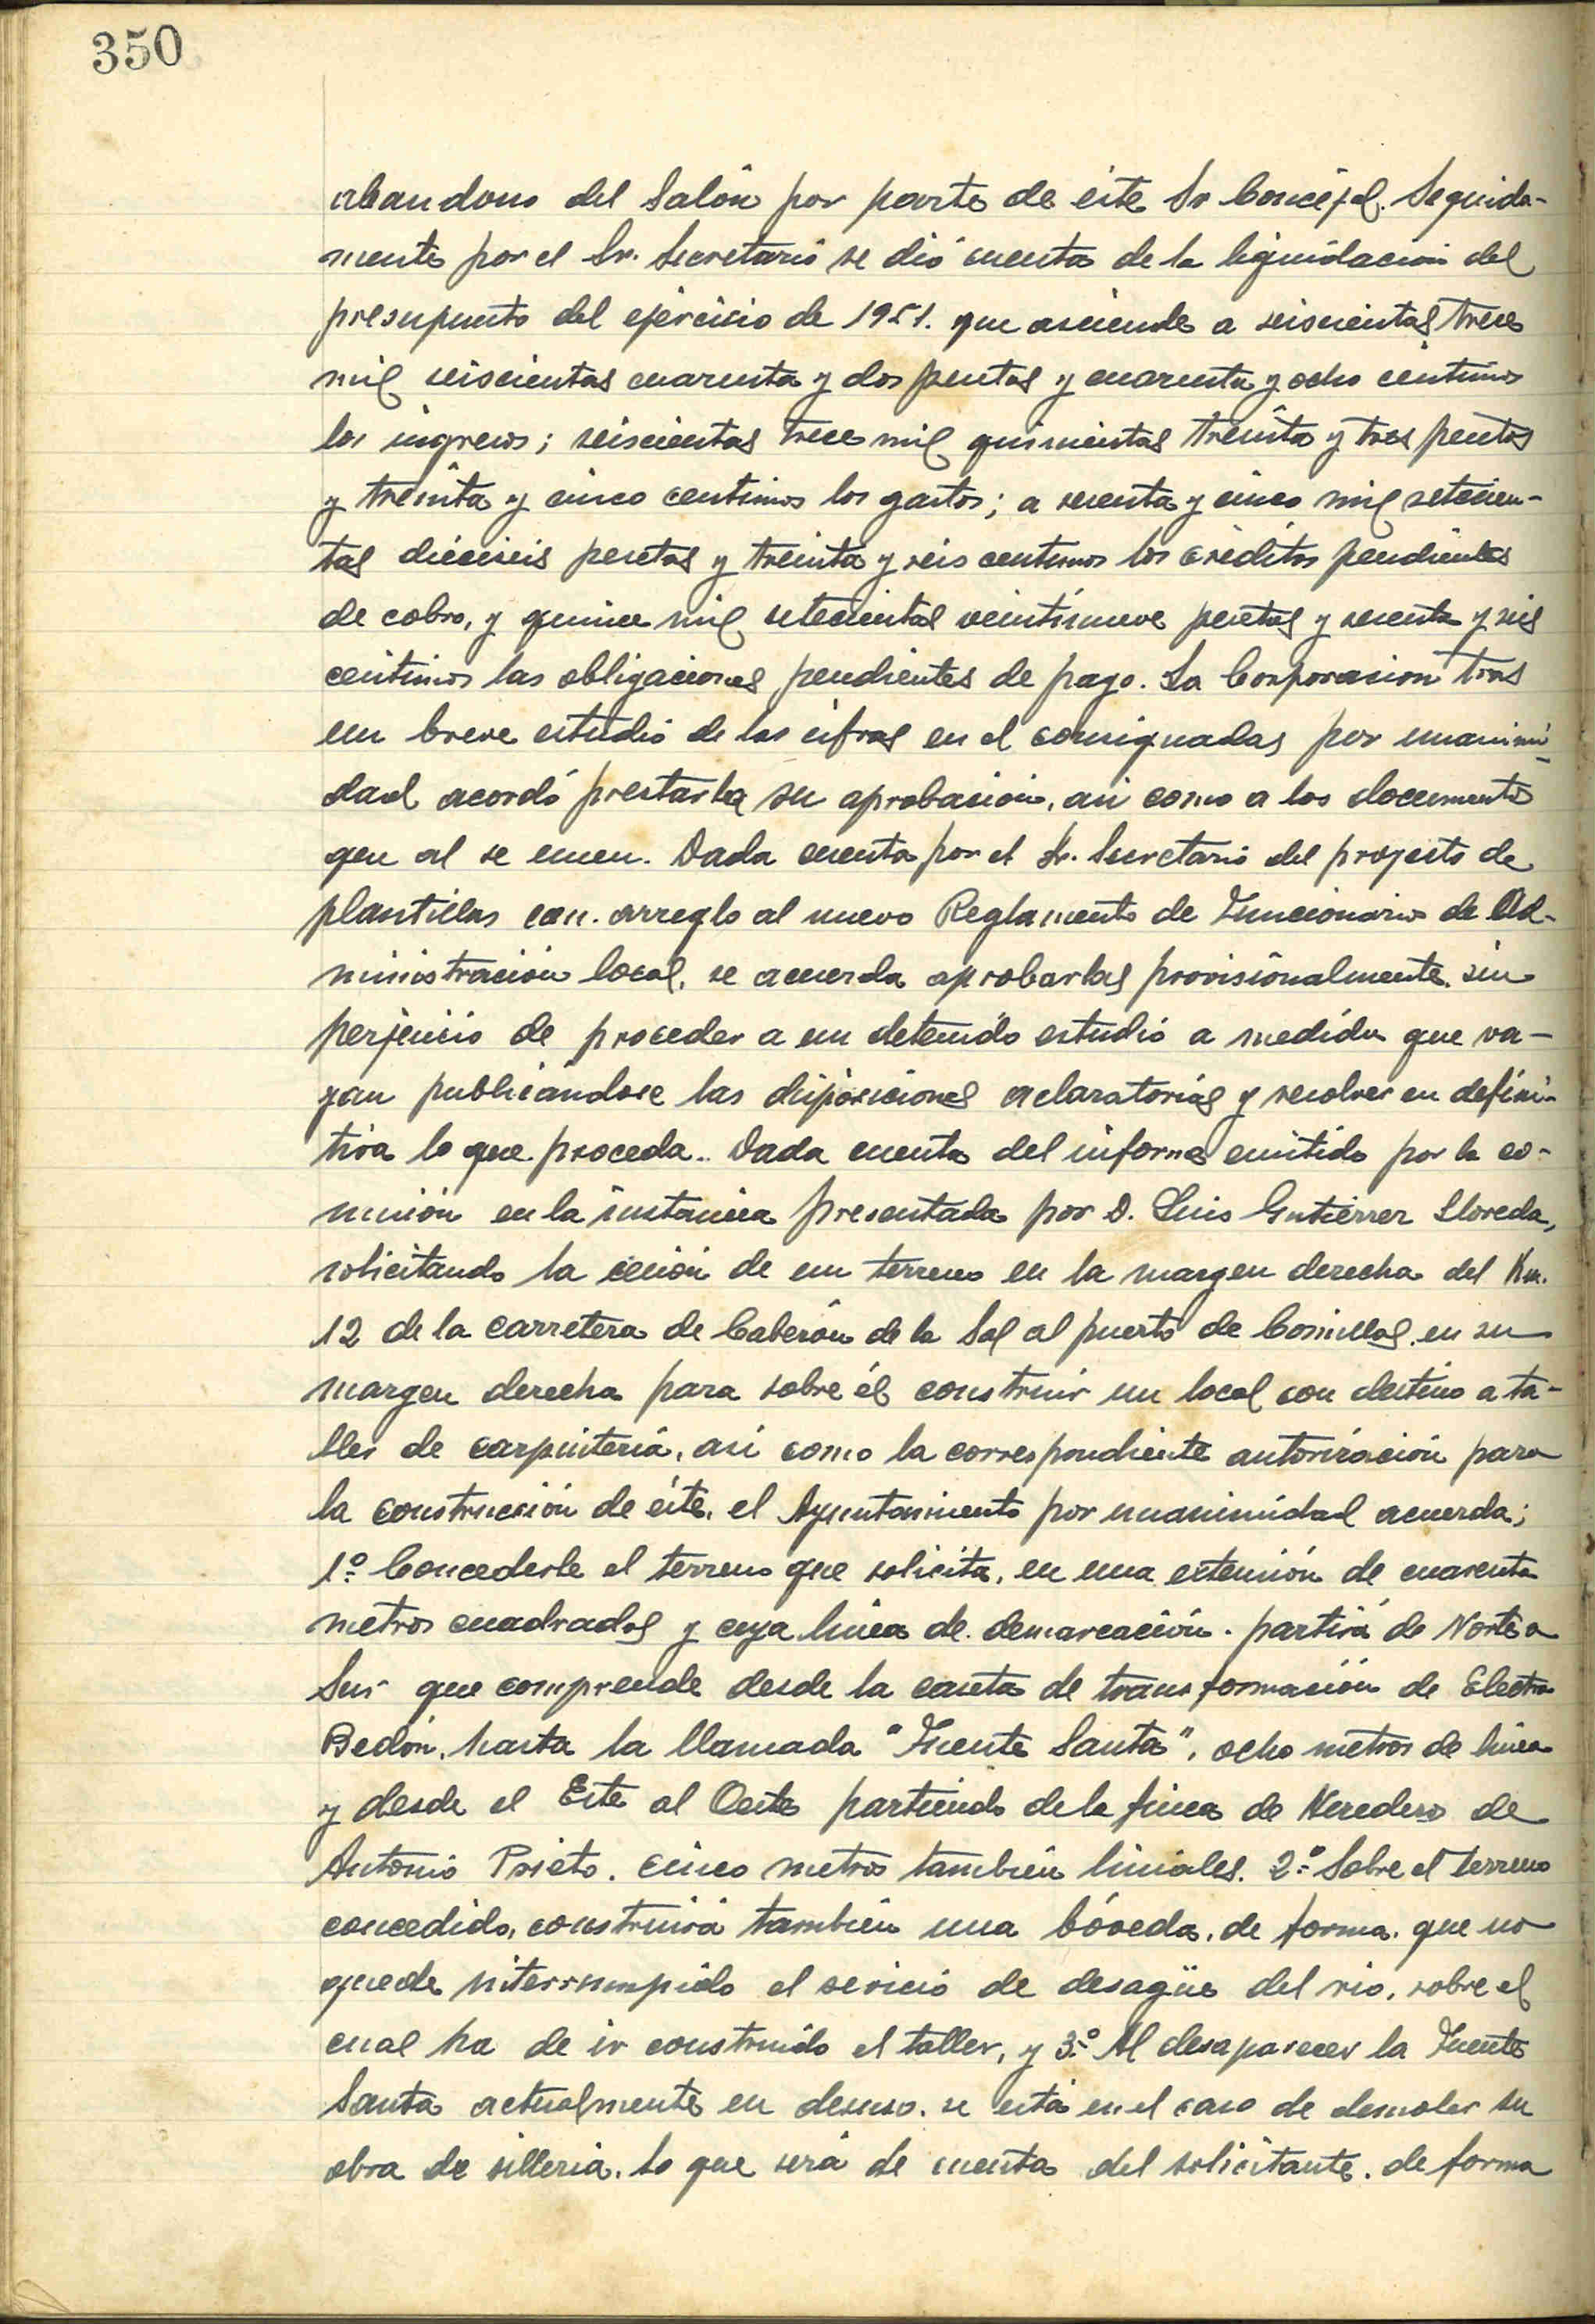 350
abandono del Salón por parte de éste Sr Concejal. Seguida-
mente por el Sr. Secretario se dió cuenta de la liquidación del
presupuesto del ejercicio de 1951. que asciende a seiscientas trece
mil seiscientas cuarenta y dos pesetas y cuarenta y ocho centimos
los ingresos; seiscientas trece mil quinientas treinta y tres pesetas
y treinta y cinco centimos los gastos; a sesenta y cinco mil setecien-
tas dieciseis pesetas y treinta y seis centimos los créditos pendientes
de cobro, y quince mil setecientas veintinueve pesetas y sesenta y seis
centimos las obligaciones pendientes de pago. La Corporación tras
un breve estudio de las cifras en el consignadas por unanimi-
dad acordó prestarla su aprobación, asi como a los documentos
que al se unen. Dada cuenta por el Sr. Secretario del proyecto de
plantillas con arreglo al nuevo Reglamento de Funcionarios de Ad-
ministración local, se acuerda aprobarlas provisionalmente, sin
perjuicio de proceder a un detenido estudio a medida que va-
yan publicándose las disposiciones aclaratorias y resolver en defini-
tiva lo que proceda. Dada cuenta del informe emitido por la co-
misión en la instancia presentada por D. Luis Gutiérrez Lloreda,
solicitando la cesión de un terreno en la margen derecha del Km.
12 de la carretera de Cabezón de la Sal al puerto de Comillas, en su
margen derecha para sobre él construir un local con destino a ta-
ller de carpintería, así como la correspondiente autorización para
la construcción de éste, el Ayuntamiento por unanimidad acuerda;
1º Concederle el terreno que solicita, en una extensión de cuarenta
metros cuadrados y cuya línea de demarcación partirá de Norte a
Sur que comprende desde la caseta de transformación de Electra
Bedón, hasta la llamada "Fuente Santa", ocho metros de línea
y desde el Este al Oeste partiendo de la finca de Heredero de
Antonio Prieto, cinco metros también liniales. 2º Sobre el terreno
concedido, construirá también una bóveda, de forma, que no
quede interrumpido el sevicio de desagüe del rio, sobre el
cual ha de ir construido el taller, y 3º Al desaparecer la Fuente
Santa actualmente en desuso, se está en el caso de demoler su
obra de silleria, lo que será de cuenta del solicitante, de forma